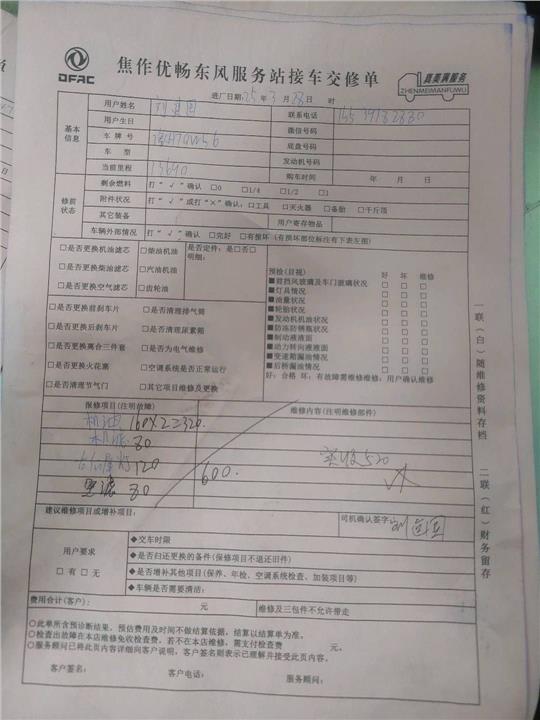 DFAC
焦作优畅东风服务站接车交修单
真美满服务
ZHENMEIMANFUWU
进厂日期：25年3月28日 时
基本信息
用户姓名 联系电话
用户生日 微信号码
车牌号 底盘号码
车型 发动机号码
当前里程 15690 购车时间 年 月 日
修前状态
剩余燃料 打“√”确认 □0 □1/4 □1/2 □1
附件状况 打“√”或打“×”确认：□工具 □灭火器 □备胎 □千斤顶
其它装备 用户寄存物品
车辆外部情况 打“√”确认 □完好 □有损坏（有损坏部位标注有下表左图）
□是否更换机油滤芯 □柴油机油 是否定件：是□否□
明细：
□是否更换柴油滤芯 □汽油机油
□是否更换空气滤芯 □齿轮油
□是否更换前刹车片 □是否清理排气筒
□是否更换后刹车片 □是否清理尿素箱
□是否更换离合三件套 □是否为电气维修
□是否更换火花塞 □空调系统是否正常运行
□是否清理节气门 □其它项目维修及更换
预检(目视) 好 坏 维修
■前挡风玻璃及车门玻璃状况 □ □ □
■灯具情况 □ □ □
■油量状况 □ □ □
■轮胎状况 □ □ □
■发动机机油状况 □ □ □
■防冻防锈瓶状况 □ □ □
■制动液液面 □ □ □
■动力转向液液面 □ □ □
■变速箱漏油情况 □ □ □
■后桥漏油情况 □ □ □
好：合格 坏：有故障需维修维修：用户确认维修
报修项目(注明故障) 维修内容(注明维修部件)
机油 160X2=320.
机滤 80
120
空滤 80
600.
实收520
建议维修项目或增补项目： 司机确认签字：
用户要求
□有□无
◆交车时限
◆是否归还更换的备件(保修项目不退还旧件)
◆是否增补其他项目(保养、年检、空调系统检查、加装项目等)
◆车辆是否需要清洁：
费用合计(客户)： 元 维修及三包件不允许带走
○此单所含预诊断结果、预估费用及时间不做结算依据，结算以结算单为准。
○检查出故障在本店维修免收检查费，若不在本店维修，需支付检查费 元。
○服务顾问已将此页内容详细向客户说明，客户签名则表示已理解并接受此页内容。
客户签名： 客户电话： 服务顾问：
一联（白）随维修资料存档
二联（红）财务留存